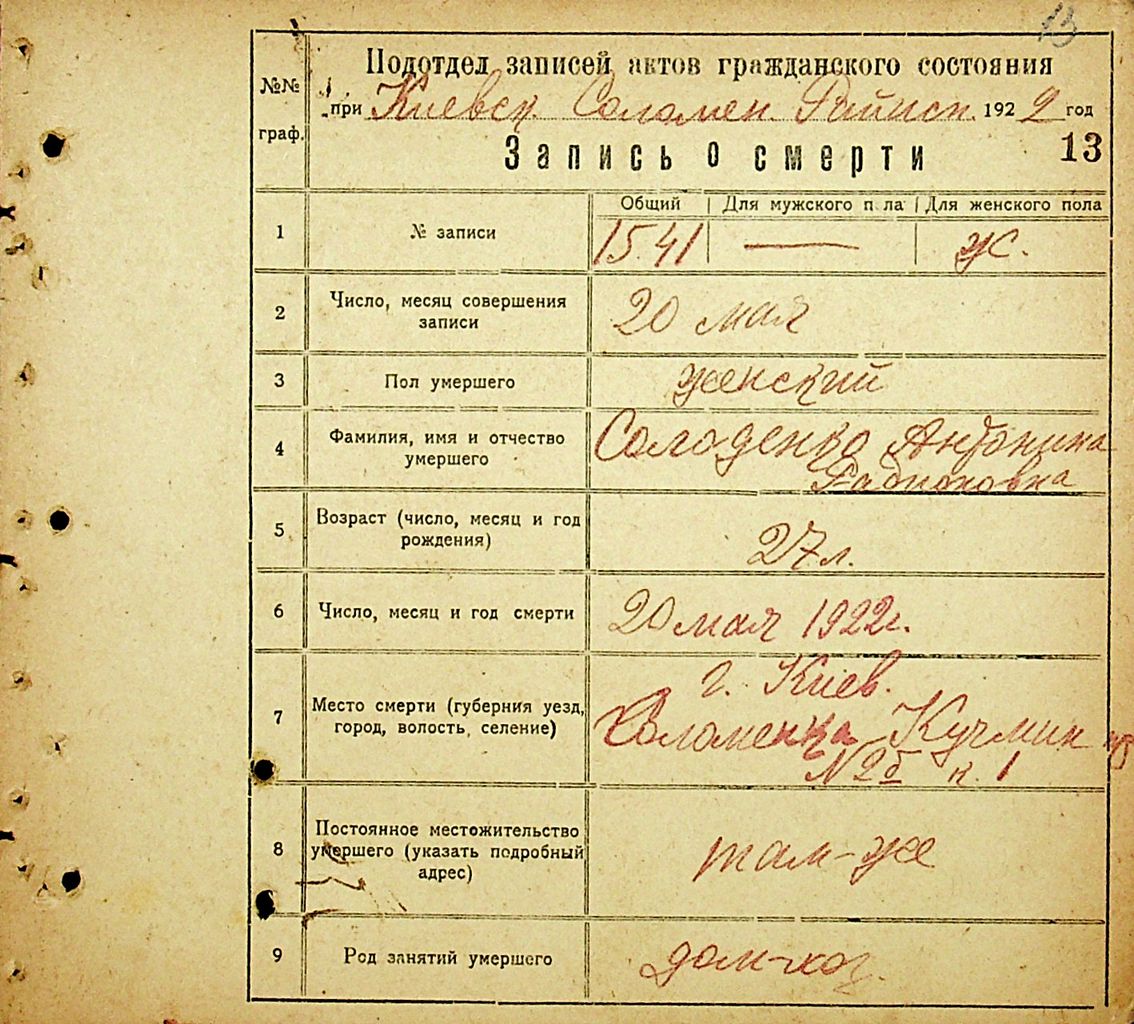 13
№№ граф.
Подотдел записей актов гражданского состояния
при Киевск. Соломен. Райисп. 1922 год
Запись о смерти 13
Общий | Для мужского п ла | Для женского пола
1 № записи 1541 — ж.
2 Число, месяц совершения
записи
20 мая
3 Пол умершего женский
4 Фамилия, имя и отчество
умершего
Солоденко Антонина
Радионовна
5 Возраст (число, месяц и год
рождения)
27 л.
6 Число, месяц и год смерти 20 мая 1922 г.
7 Место смерти (губерния уезд,
город, волость, селение)
г. Киев.
Соломенка Кучмин
к. 1
8 Постоянное местожительство
умершего (указать подробный
адрес)
там-же
9 Род занятий умершего дом-хоз.